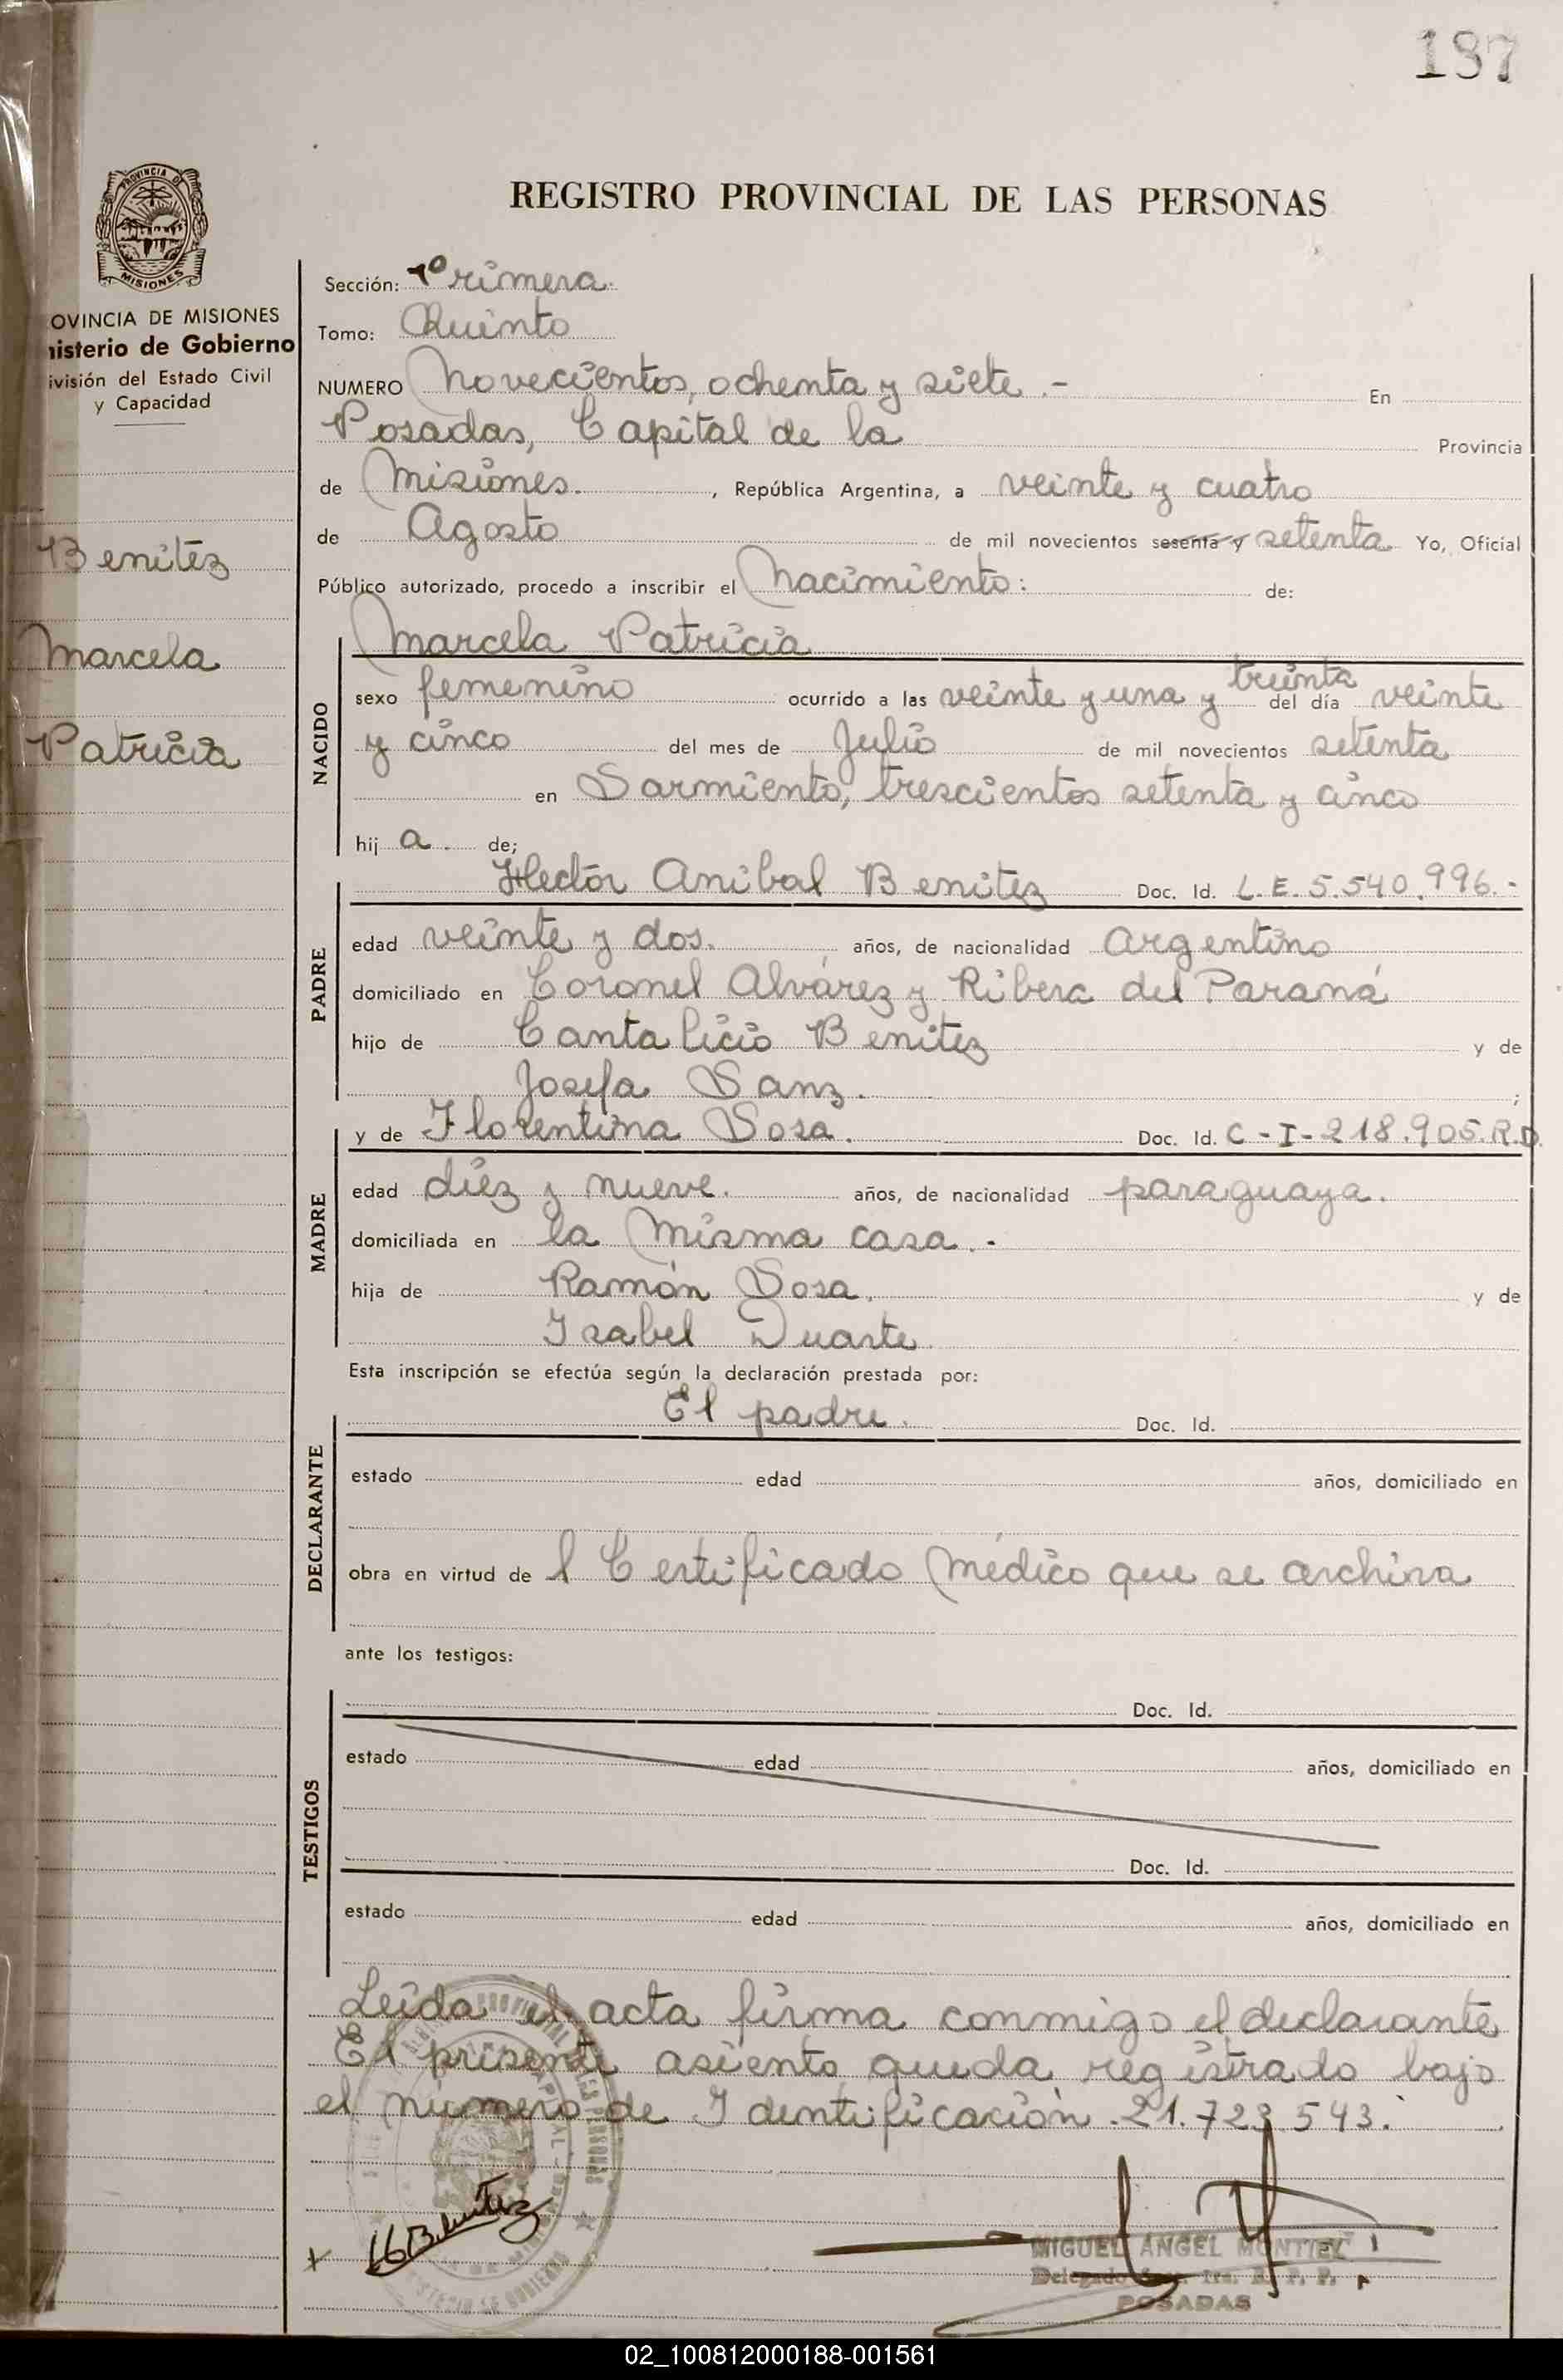 187
REGISTRO PROVINCIAL DE LAS PERSONAS
PROVINCIA D
MISIONES
OVINCIA DE MISIONES
nisterio de Gobierno
ivisión del Estado Civil
y Capacidad
Benitez
Marcela
Patricia
Sección: Primera.
Tomo: Quinto
NUMERO Novecientos, ochenta y siete.- En
Posadas, Capital de la Provincia
de Misiones. , República Argentina, a veinte y cuatro
de Agosto de mil novecientos sesenta y setenta Yo, Oficial
Público autorizado, procedo a inscribir el Nacimiento: de:
Marcela Patricia
NACIDO
sexo femenino ocurrido a las veinte y una y treinta del día veinte
y cinco del mes de Julio de mil novecientos setenta
en Sarmiento, trescientos setenta y cinco
hij a. de;
Hector Anibal Benitez Doc. Id. L.E. 5.540.996.-
PADRE
edad veinte y dos. años, de nacionalidad argentino
domiciliado en Coronel Alvárez y Ribera del Paraná
hijo de Cantalicio Benitez y de
Josefa Sanz. ;
y de Florentina Sosa. Doc. Id. C-I-218.905.R.D.
MADRE
edad diez y nueve. años, de nacionalidad paraguaya.
domiciliada en la misma casa.-
hija de Ramón Sosa. y de
Isabel Duarte.
Esta inscripción se efectúa según la declaración prestada por:
El padre. Doc. Id.
DECLARANTE
estado edad años, domiciliado en
obra en virtud de l Certificado Médico que se archiva
ante los testigos:
Doc. Id.
TESTIGOS
estado edad años, domiciliado en
Doc. Id.
estado edad años, domiciliado en
Leida el acta firma conmigo el declarante
El presente asiento queda registrado bajo
el número de Identificación 21.723.543.
x HBenitez
MIGUEL ANGEL MONTIEL
Delegado
POSADAS
02_100812000188-001561